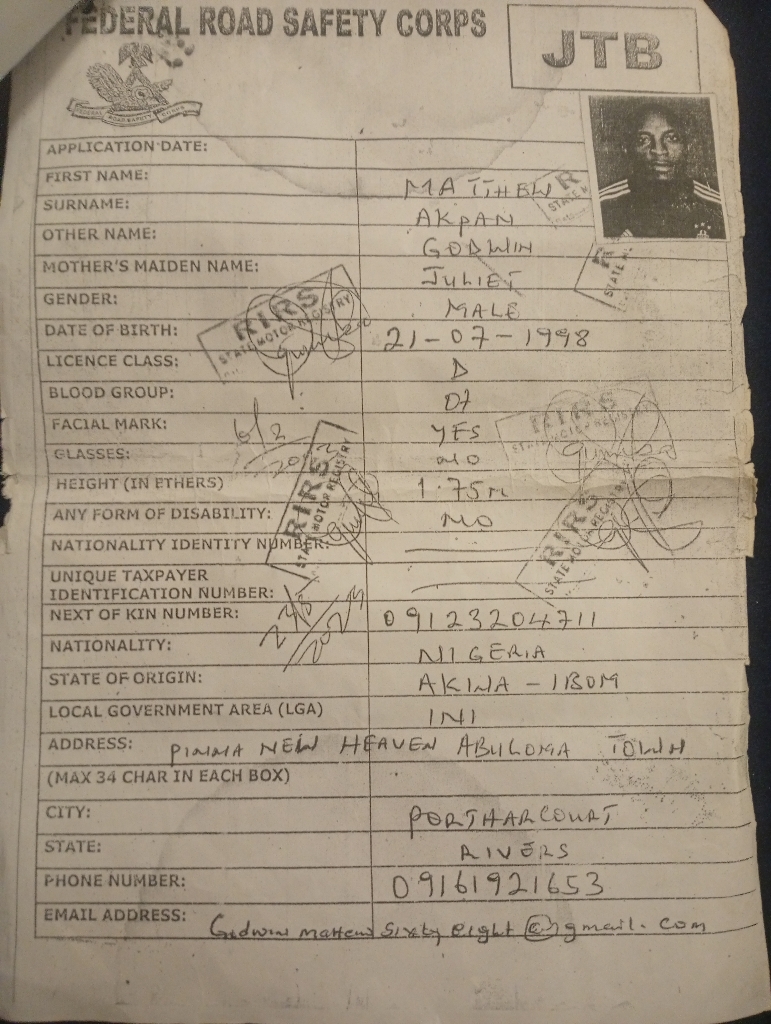 FEDERAL ROAD SAFETY CORPS
JTB
FEDERAL ROAD SAFETY CORPS
APPLICATION DATE:
FIRST NAME: MATTHEW
SURNAME: AKPAN
OTHER NAME: GODWIN
MOTHER'S MAIDEN NAME: JULIET
GENDER: MALE
DATE OF BIRTH: 21-07-1998
LICENCE CLASS: D
BLOOD GROUP:
FACIAL MARK: YES
GLASSES: NO
HEIGHT (IN ETHERS) 1.75m
ANY FORM OF DISABILITY: NO
NATIONALITY IDENTITY NUMBER:
UNIQUE TAXPAYER
IDENTIFICATION NUMBER:
NEXT OF KIN NUMBER: 09123204711
NATIONALITY: NIGERIA
STATE OF ORIGIN: AKWA-IBOM
LOCAL GOVERNMENT AREA (LGA) INI
ADDRESS: NEW HEAVEN ABULOMA TOWN
(MAX 34 CHAR IN EACH BOX)
CITY: PORTHARCOURT
STATE: RIVERS
PHONE NUMBER: 09161921653
EMAIL ADDRESS: Godwin matthew Sixty eight @gmail.com
RIRS
STATE MOTOR REGISTRY
RIRS
STATE MOTOR REGISTRY
RIRS
STATE MOTOR REGISTRY
RIRS
STATE MOTOR REGISTRY